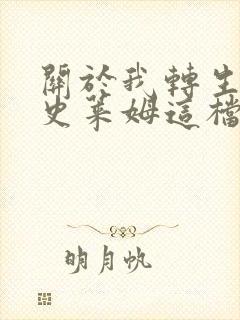 關於我轉生
史萊姆這檔
明月帆